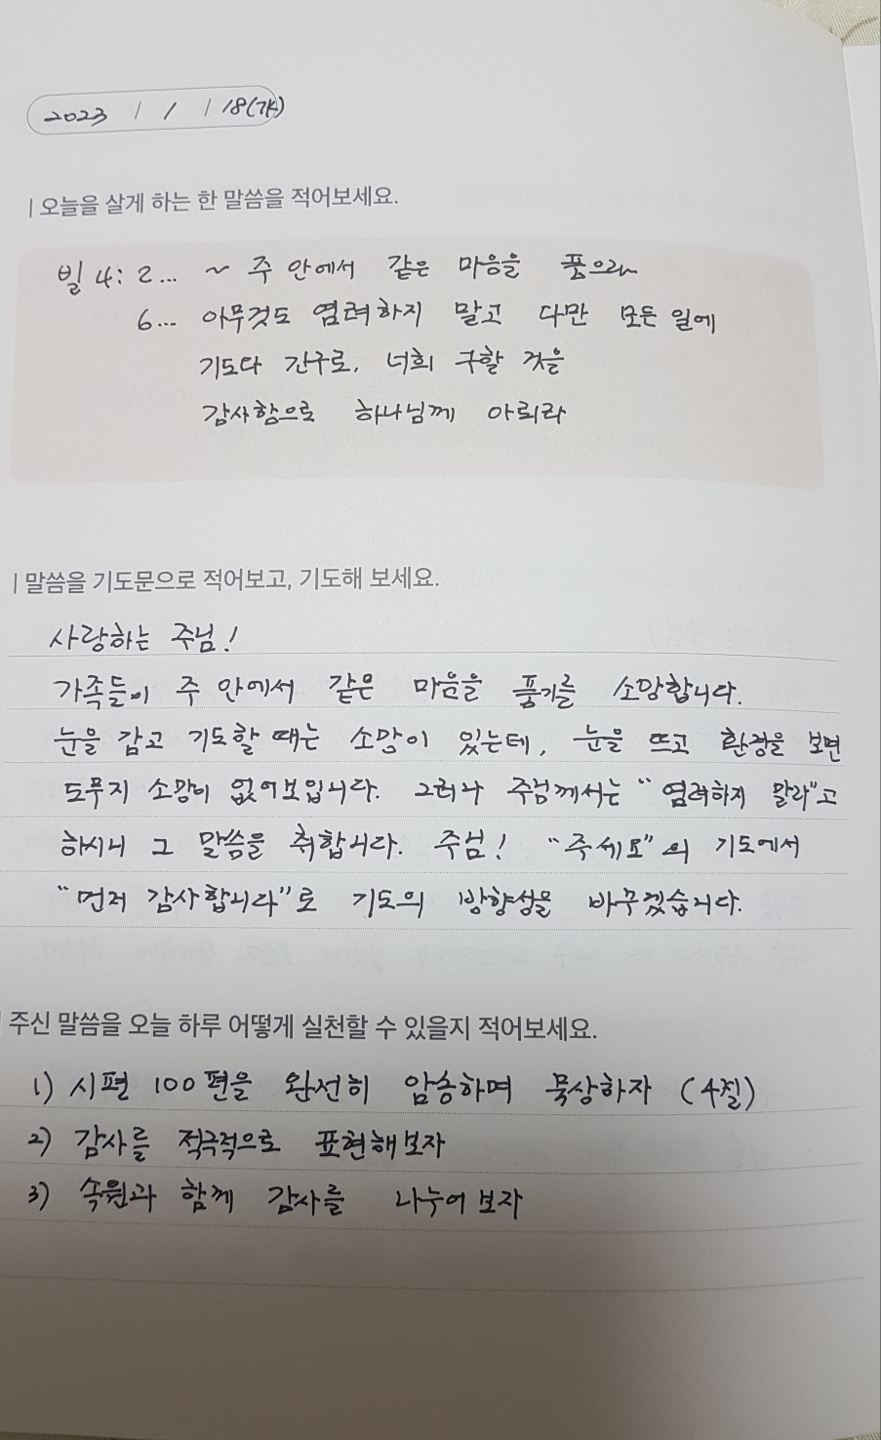 2023 / 1 / 18(수)
| 오늘을 살게 하는 한 말씀을 적어보세요.
빌 4: 2... ~ 주 안에서 같은 마음을 품으라
6... 아무것도 염려하지 말고 다만 모든 일에
기도와 간구로, 너희 구할 것을
감사함으로 하나님께 아뢰라
| 말씀을 기도문으로 적어보고, 기도해 보세요.
사랑하는 주님!
가족들이 주 안에서 같은 마음을 품기를 소망합니다.
눈을 감고 기도할 때는 소망이 있는데, 눈을 뜨고 환경을 보면
도무지 소망이 없어보입니다. 그러나 주님께서는 "염려하지 말라"고
하시니 그 말씀을 취합니다. 주님! "주세요"의 기도에서
"먼저 감사합니다"로 기도의 방향성을 바꾸겠습니다.
| 주신 말씀을 오늘 하루 어떻게 실천할 수 있을지 적어보세요.
1) 시편 100편을 완전히 암송하며 묵상하자 (4절)
2) 감사를 적극적으로 표현해보자
3) 속원과 함께 감사를 나누어보자